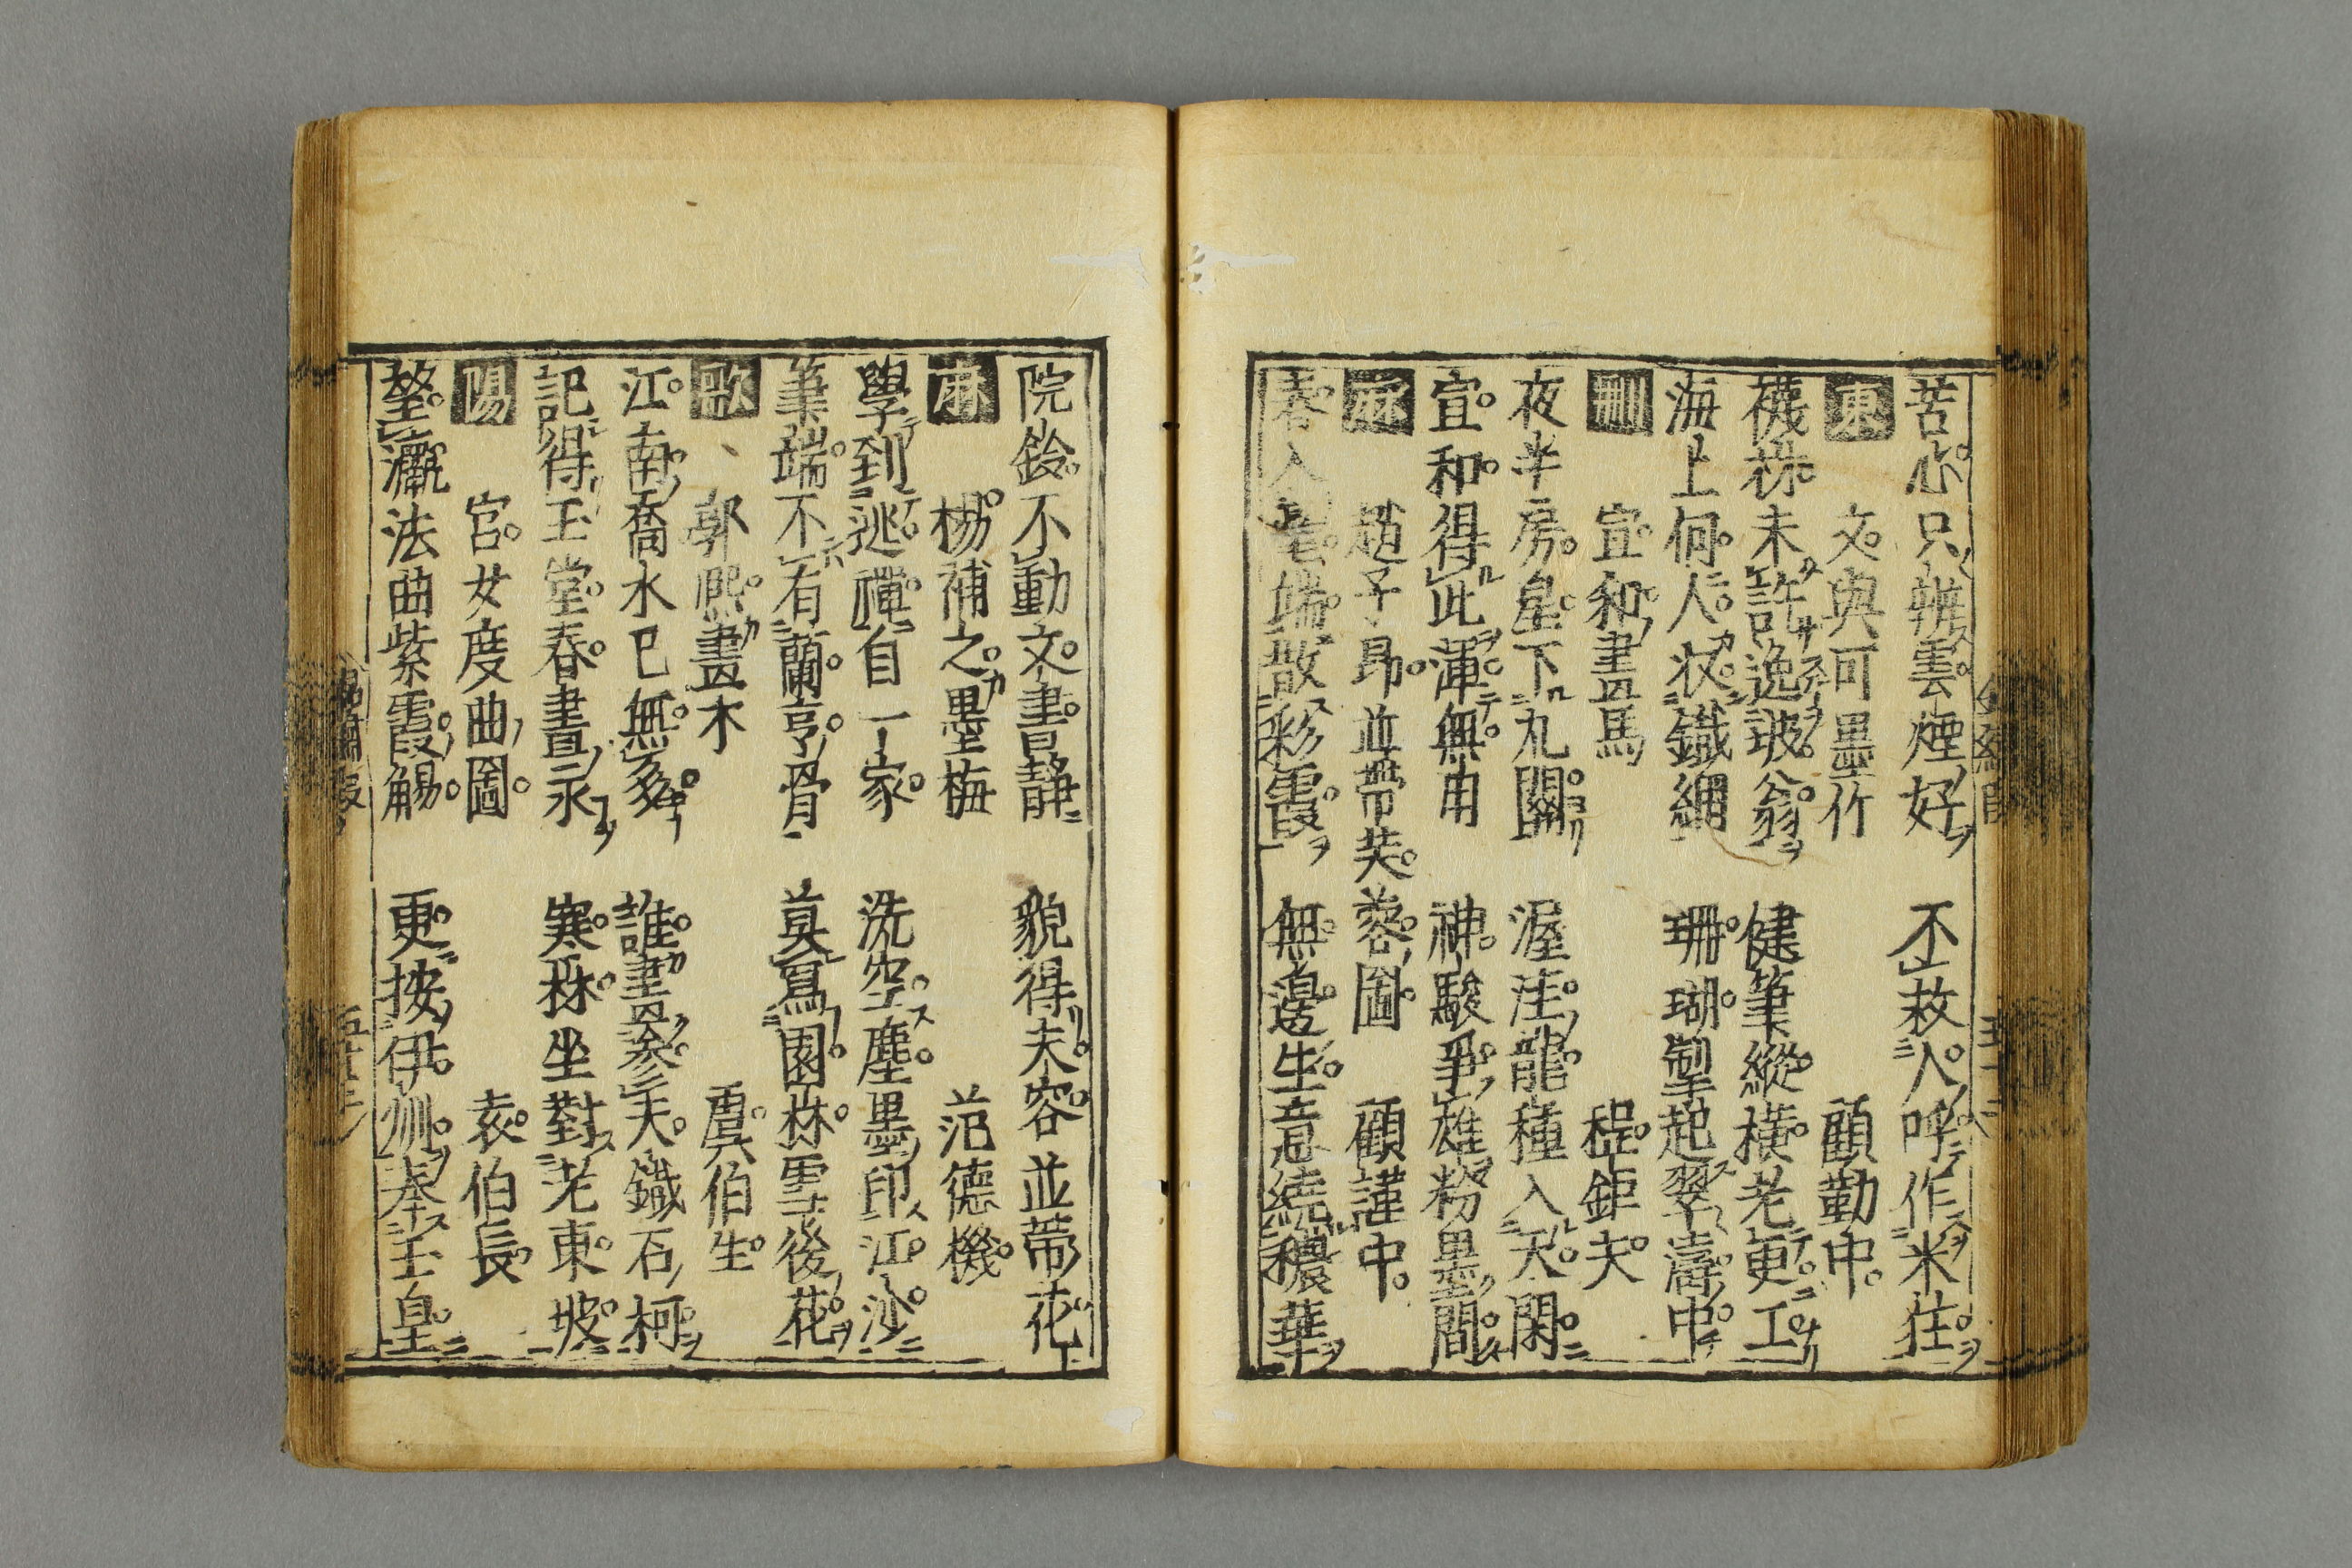 苦心只辨雲煙好　不救人呼作米狂
東　文與可墨竹　顧勤中
襪材未許逸坡翁　健筆縱橫老更工
海上何人状鐵網　珊瑚掣起翠濤中
刪　宣和畫馬　程鉅夫
夜半房星下九關　渥洼龍種入天閑
宣和得此渾無用　神駿爭雄粉墨間
麻　趙子昂並蒂芙蓉圖　顧謹中
春入毫端散彩霞　無邊生意繞穠華
院鈴不動文書静　貌得未容並蒂花
麻　楊補之墨梅　范德機
學到逃禪自一家　洗空塵墨印江沙
筆端不有蘭亭骨　莫寫園林雪後花
歌　郭熙畫木　虞伯生
江南喬木已無多　誰畫參天鐵石柯
記得玉堂春晝永　寒林坐對老東坡
陽　宮女度曲圖　袁伯長
望瀛法曲紫霞觴　更按伊州奉玉皇